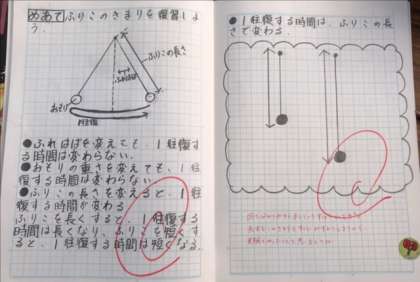 めあて ふりこのきまりを復習しよ
う。
ふりこの長さ
ふれはば
おもり
1往復
●ふれはばを変えても、1往復す
る時間は変わらない。
●おもりの重さを変えても、1往
復する時間は変わらない。
●ふりこの長さを変えると、1往
復する時間が変わる
ふりこを長くすると、1往復する
時間は長くなり、ふりこを短くす
ると、1往復する時間は短くなる。
●1往復する時間は、ふりこの長
さで変わる。